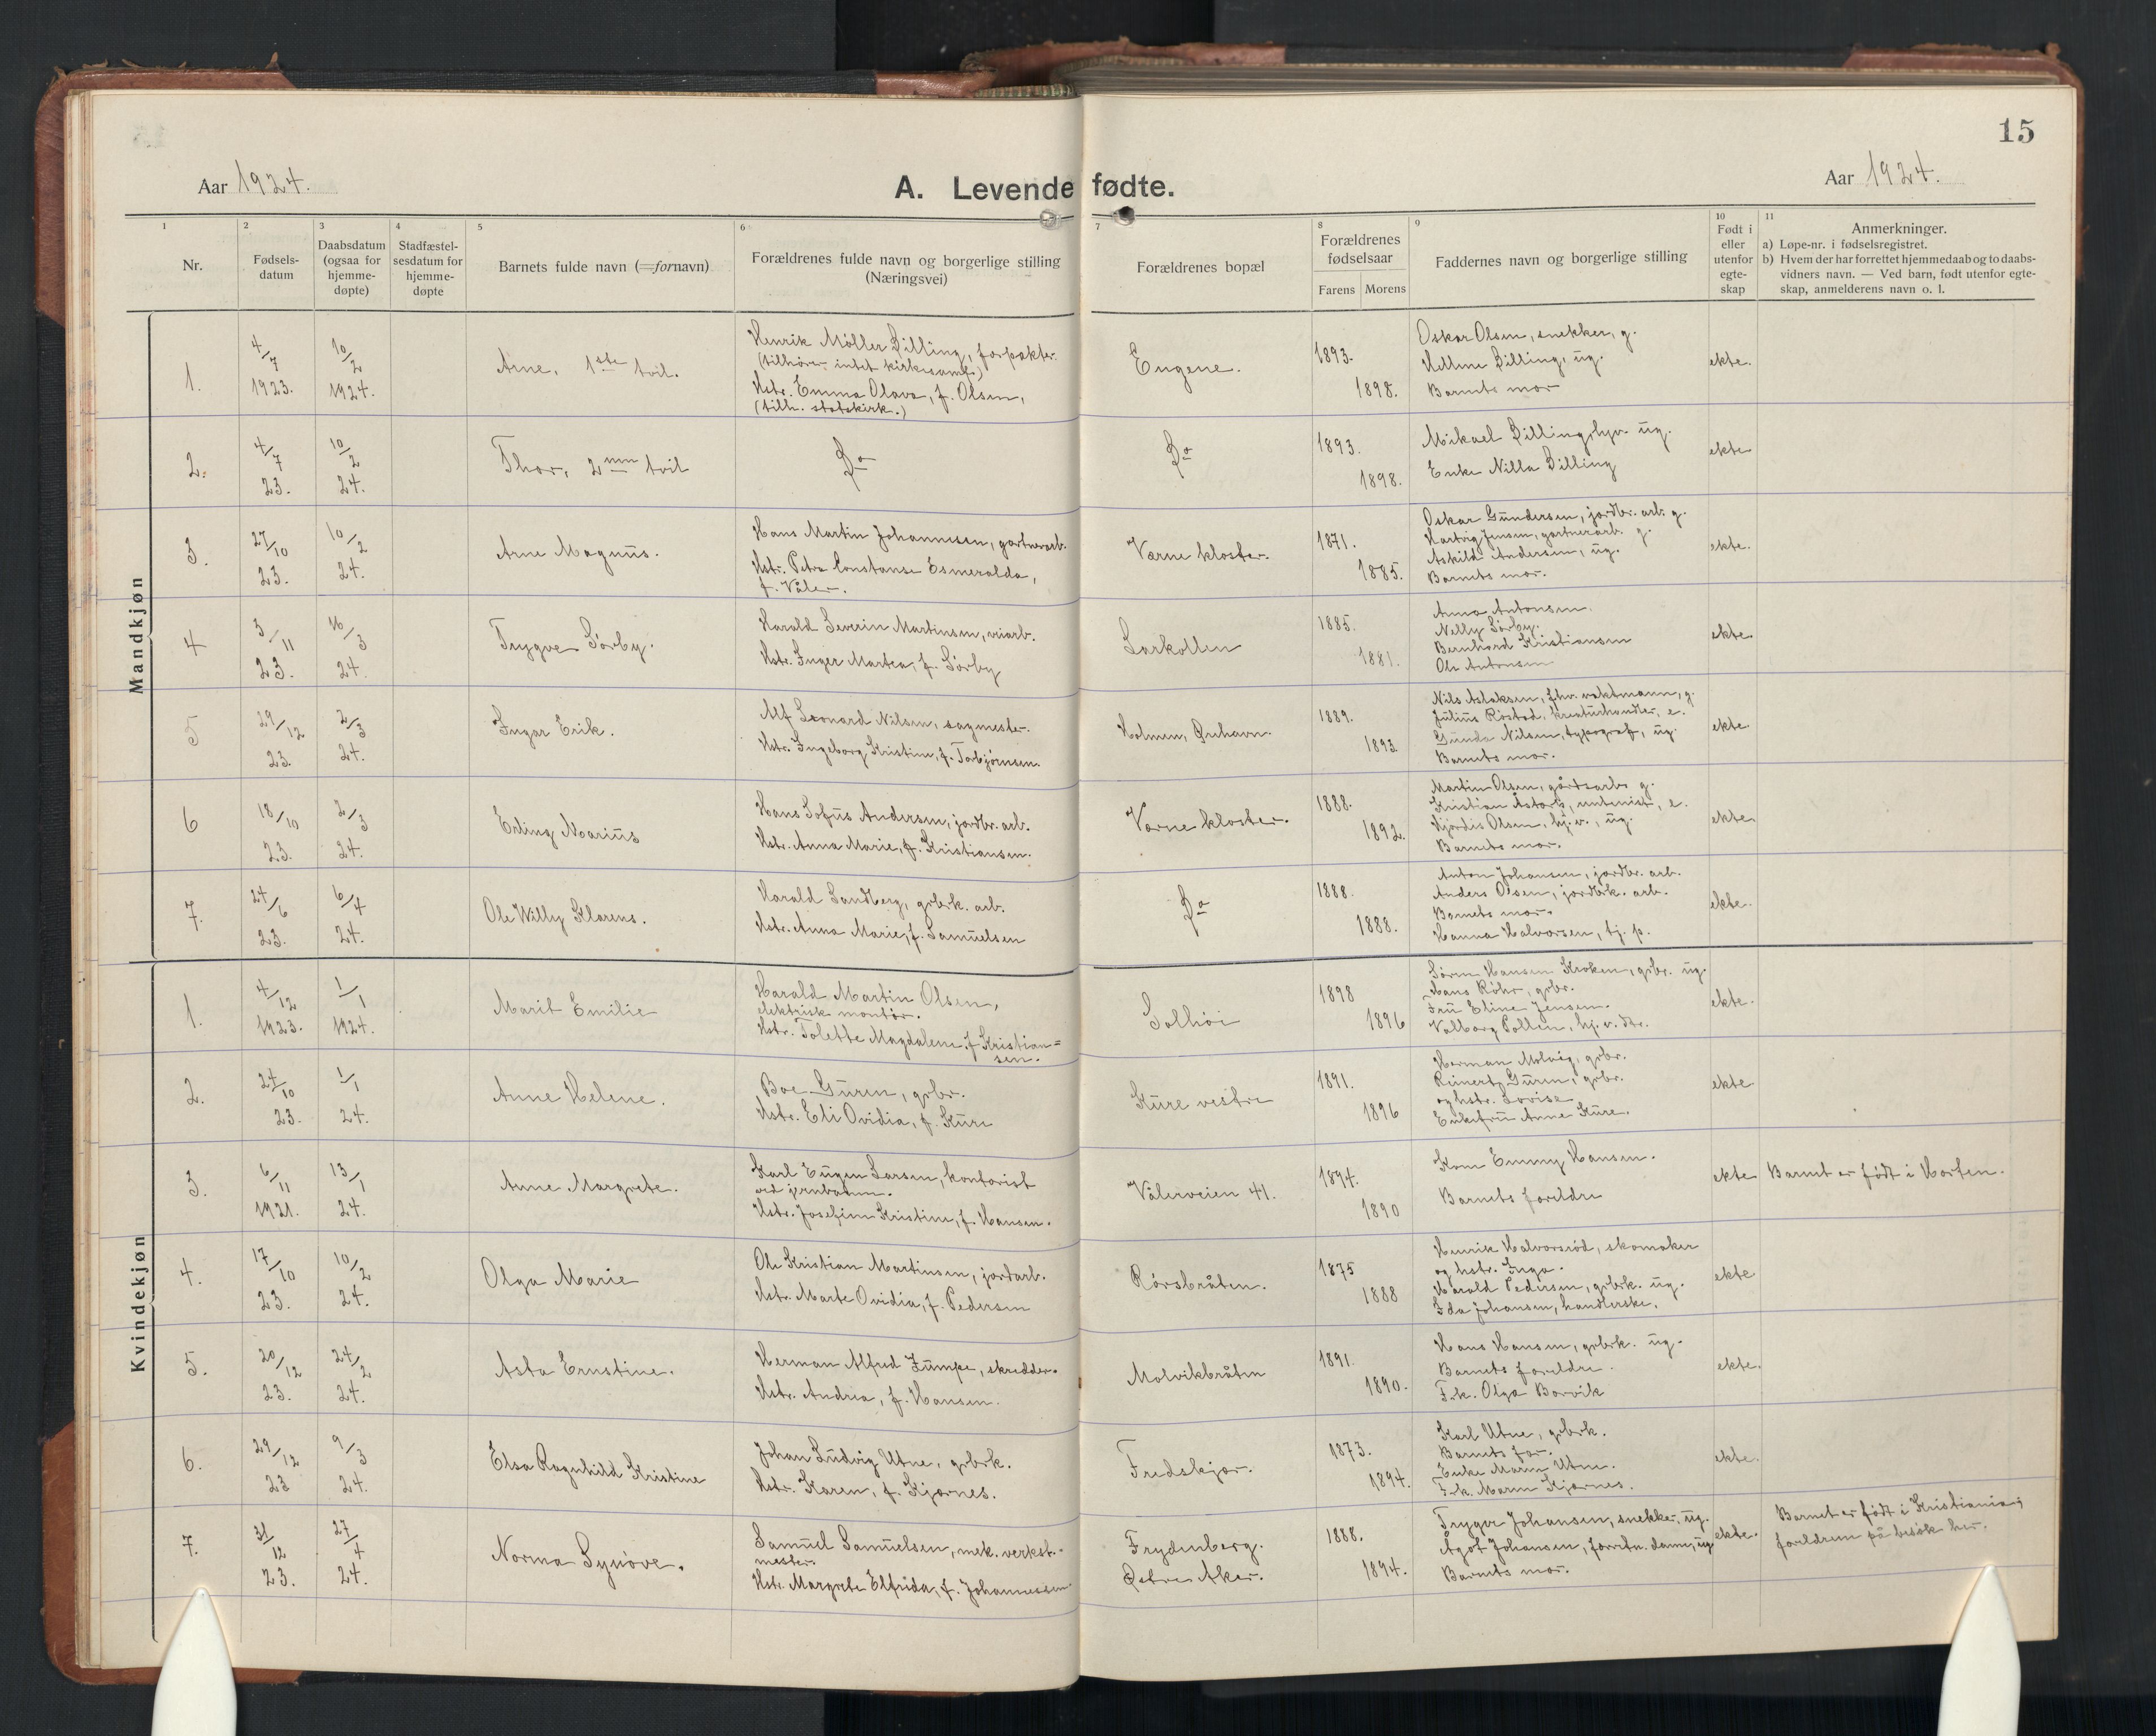 15
Aar 1924.
A. Levende fødte.
Aar 1924.
1
2
3
4
5
6
7
8
9
10
11
Nr.
Fødsels-
datum
Daabsdatum
(ogsaa for
hjemme-
døpte)
Stadfæstel-
sesdatum for
hjemme-
døpte
Barnets fulde navn (=fornavn)
Forældrenes fulde navn og borgerlige stilling
(Næringsvei)
Forældrenes bopæl
Forældrenes
fødselsaar
Farens
Morens
Faddernes navn og borgerlige stilling
Født i
eller
utenfor
egte-
skap
Anmerkninger.
a) Løpe-nr. i fødselsregistret.
b) Hvem der har forrettet hjemmedaab og to daabs-
vidners navn. — Ved barn, født utenfor egte-
skap, anmelderens navn o. l.
Mandkjøn
1.
4/7
1923.
10/2
1924.
Arne, 1ste tvil.
Henrik Møller Dilling, forpakter.
(tilhører intet kirkesamf.)
Hstr. Emma Olava, f. Olsen,
(tilh. statskirk.)
Eugene.
1893.
1898.
Oskar Olsen, snekker, g.
Helene Dilling, ug.
Barnets mor
ekte.
2.
4/7
23.
10/2
24.
Thor, 2nen tvil
Do
Do
1893.
1898.
Mikael Dilling, ug.
Enke Nilla Dilling
ekte
3.
27/10
23.
10/2
24.
Arne Magnus.
Hans Martin Johannesen, gartnerarb.
Hstr. Petra Constanse Esmeralda,
f. Våler.
Værne kloster.
1871.
1885.
Oskar Gundersen, jordbr. arb. g.
Hartvig Jensen, gartnerarb. g.
Askild Andersen, ug.
Barnets mor.
ekte.
4
3/11
23.
16/3
24.
Trygve Sørby.
Harald Severin Martinsen, veiarb.
Hstr. Inger Martea, f. Sørby
Larkollen
1885.
1881.
Anna Antonsen.
Nelly Sørby.
Bernhard Kristiansen
Ole Antonsen
ekte.
5
29/12
23.
2/3
24.
Ingar Erik.
Alf Leonard Nilsen, sagmester.
Hstr. Ingeborg Kristine, f. Torbjørnsen.
Holmen, Ørehavn.
1889.
1893.
Nils Aslaksen, fhv. vaktmann, g.
Julius Rørstad, kreaturhandler, e.
Gunda Nilsen, typograf, ug.
Barnets mor.
ekte
6
18/10
23.
2/3
24.
Erling Marius
Hans Sofus Andersen, jordbr. arb.
Hstr. Anna Marie, f. Kristiansen.
Værne kloster.
1888.
1892.
Martin Olsen, gårdsarb. g.
Kristian
Hjørdis Olsen, hj. v., ug.
Barnets mor.
ekte.
7.
24/6
23.
6/4
24.
Ole Willy Klarens.
Harald Sandberg, grbrk. arb.
Hstr. Anna Marie, f. Samuelsen
Do
1888.
1888.
Anton Johansen, jordbr. arb.
Anders Olsen, jordbrk. arb.
Barnets mor.
Hanna Halvorsen, tj. p.
ekte.
Kvindekjøn
1.
4/12
1923.
1/1
1924.
Marit Emilie
Harald Martin Olsen,
elektrisk montør.
Hstr. Tolette Magdalene, f. Kristian=
sen.
Solhøi
1898
1896
Søren Hansen Kroken, grbr. ug.
Hans Røhr, grbr.
Fru Eline Jensen.
Valborg Pollen, hj. v. dtr.
ekte.
2.
24/10
23.
1/1
24.
Anne Helene.
Boe Guren, grbr.
Hstr. Eli Ovidia, f. Kure
Kure vestre
1891.
1896
Herman Molvig, grbr.
Reinert Guren, grbr.
og hstr. Lovise
Enkefru Anne Kure.
ekte
3.
6/11
1921.
13/1
24.
Anne Margrete.
Karl Eugen Larsen, kontorist
ved jernbanen.
Hstr. Josefine Kristine, f. Hansen.
Vålerveien 41.
1894.
1890
Kone Emmy Hansen.
Barnets foreldre
ekte
Barnet er født i Horten.
4.
17/10
23.
10/2
24.
Olga Marie
Ole Kristian Martinsen, jordarb.
Hstr. Marte Ovidia, f. Pedersen
Rørsbråten.
1875
1888
Henrik Halvorsrød, skomaker
og hstr. Inga.
Harald Pedersen, grbrk. ug.
Ida Johansen, handlerske.
ekte
5.
20/12
23.
24/2
24.
Asta Ernstine.
Herman Alfred Zumpe, skredder.
Hstr. Andrea, f. Hansen.
Molvikbråten
1891.
1890.
Hans Hansen, grbrk. ug.
Barnets foreldre.
Frk. Olga Borvik
ekte.
6.
29/12
23
9/3
24.
Elsa Ragnhild Kristine
Johan Ludvig Utne, grbrk.
Hstr. Karen, f. Kjærnes.
Fredskjær.
1873.
1894.
Karl Utne, grbrk.
Barnets far.
Enke Maren Utne.
Frk. Maren Kjærnes.
ekte.
7.
31/12
23.
27/4
24.
Norma Synøve.
Samuel Samuelsen, mek. verkst.-
mester.
Hstr. Margrete Elfrida, f. Johannessen.
Frydenberg.
Østre Aker.
1888.
1894.
Trygve Johansen, snekker, ug.
Ågot Johansen, forretn. dame, ug
Barnets mor.
ekte.
Barnet er født i Kristiania;
foreldrene på besøk her.